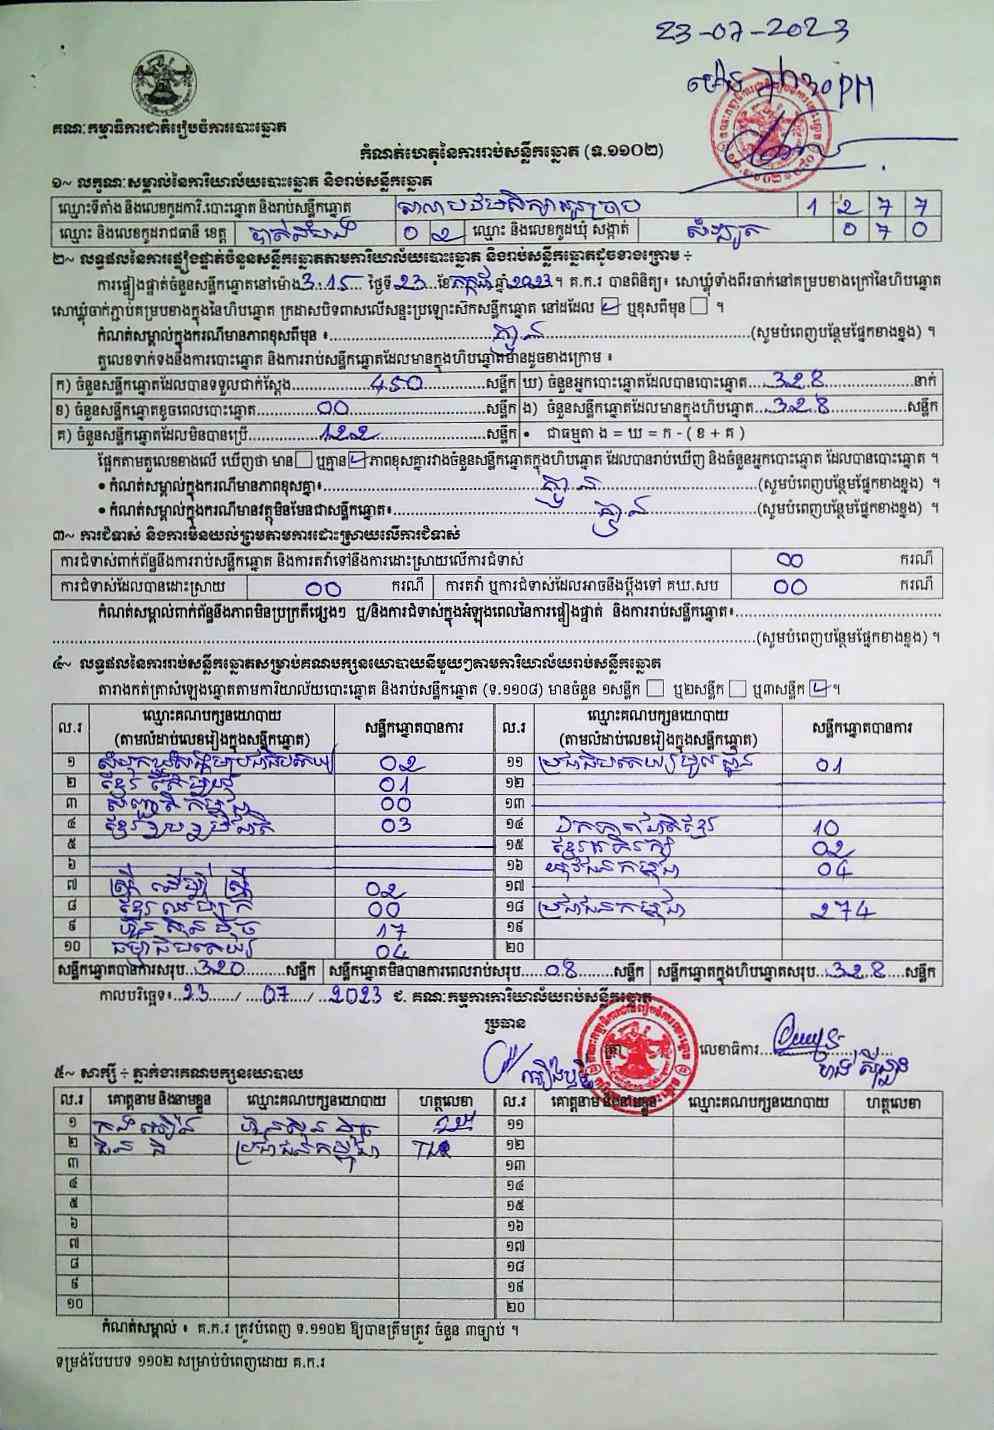 23-07-2023
ម៉ោង 7h30PM
គណៈកម្មាធិការជាតិរៀបចំការបោះឆ្នោត
កំណត់ហេតុនៃការរាប់សន្លឹកឆ្នោត (ទ.១១០២)
១~ លក្ខណៈសម្គាល់នៃការិយាល័យបោះឆ្នោត និងរាប់សន្លឹកឆ្នោត
ឈ្មោះទីតាំង និងលេខកូដការិ.បោះឆ្នោត និងរាប់សន្លឹកឆ្នោត 1 2 7 7
ឈ្មោះ និងលេខកូដរាជធានី ខេត្ត បាត់ដំបង 0 2 ឈ្មោះ និងលេខកូដឃុំ សង្កាត់ សំឡូត 0 7 0
២~ លទ្ធផលនៃការផ្ទៀងផ្ទាត់ចំនួនសន្លឹកឆ្នោតតាមការិយាល័យបោះឆ្នោត និងរាប់សន្លឹកឆ្នោតដូចខាងក្រោម ÷
ការផ្ទៀងផ្ទាត់ចំនួនសន្លឹកឆ្នោតនៅម៉ោង 3:15 ថ្ងៃទី 23 ខែ កក្កដា ឆ្នាំ 2023 ។ គ.ក.រ បានពិនិត្យ៖ សោឃ្លុំទាំងពីរចាក់នៅគម្របខាងក្រៅនៃហិបឆ្នោត
សោឃ្លុំចាក់ភ្ជាប់គម្របខាងក្នុងនៃហិបឆ្នោត ក្រដាសបិទពាសលើសន្ទះប្រឡោះស៊កសន្លឹកឆ្នោត នៅដដែល ☑ ឬខុសពីមុន ☐ ។
កំណត់សម្គាល់ក្នុងករណីមានភាពខុសពីមុន ៖ គ្មាន (សូមបំពេញបន្ថែមផ្នែកខាងខ្នង) ។
តួលេខទាក់ទងនឹងការបោះឆ្នោត និងការរាប់សន្លឹកឆ្នោតដែលមានក្នុងហិបឆ្នោតមានដូចខាងក្រោម ៖
ក) ចំនួនសន្លឹកឆ្នោតដែលបានទទួលជាក់ស្តែង 450 សន្លឹក ឃ) ចំនួនអ្នកបោះឆ្នោតដែលបានបោះឆ្នោត 328 នាក់
ខ) ចំនួនសន្លឹកឆ្នោតខូចពេលបោះឆ្នោត 00 សន្លឹក ង) ចំនួនសន្លឹកឆ្នោតដែលមានក្នុងហិបឆ្នោត 328 សន្លឹក
គ) ចំនួនសន្លឹកឆ្នោតដែលមិនបានប្រើ 122 សន្លឹក • ជាធម្មតា ង = ឃ = ក - ( ខ + គ )
ផ្អែកតាមតួលេខខាងលើ ឃើញថា មាន ☐ ឬគ្មាន ☑ ភាពខុសគ្នារវាងចំនួនសន្លឹកឆ្នោតក្នុងហិបឆ្នោត ដែលបានរាប់ឃើញ និងចំនួនអ្នកបោះឆ្នោត ដែលបានបោះឆ្នោត ។
• កំណត់សម្គាល់ក្នុងករណីមានភាពខុសគ្នា៖ គ្មាន (សូមបំពេញបន្ថែមផ្នែកខាងខ្នង) ។
• កំណត់សម្គាល់ក្នុងករណីមានវត្ថុមិនមែនជាសន្លឹកឆ្នោត៖ គ្មាន (សូមបំពេញបន្ថែមផ្នែកខាងខ្នង) ។
៣~ ការជំទាស់ និងការមិនយល់ព្រមតាមការដោះស្រាយលើការជំទាស់
ការជំទាស់ពាក់ព័ន្ធនឹងការរាប់សន្លឹកឆ្នោត និងការតវ៉ាទៅនឹងការដោះស្រាយលើការជំទាស់ 00 ករណី
ការជំទាស់ដែលបានដោះស្រាយ 00 ករណី ការតវ៉ា ឬការជំទាស់ដែលអាចនឹងប្តឹងទៅ គឃ.សប 00 ករណី
កំណត់សម្គាល់ពាក់ព័ន្ធនឹងភាពមិនប្រក្រតីផ្សេងៗ ឬ/និងការជំទាស់ក្នុងអំឡុងពេលនៃការផ្ទៀងផ្ទាត់ និងការរាប់សន្លឹកឆ្នោត៖
(សូមបំពេញបន្ថែមផ្នែកខាងខ្នង) ។
៤~ លទ្ធផលនៃការរាប់សន្លឹកឆ្នោតសម្រាប់គណបក្សនយោបាយនីមួយៗតាមការិយាល័យរាប់សន្លឹកឆ្នោត
តារាងកត់ត្រាសំឡេងឆ្នោតតាមការិយាល័យបោះឆ្នោត និងរាប់សន្លឹកឆ្នោត (ទ.១១០៨) មានចំនួន ១សន្លឹក ☐ ឬ២សន្លឹក ☐ ឬ៣សន្លឹក ☑ ។
ល.រ ឈ្មោះគណបក្សនយោបាយ សន្លឹកឆ្នោតបានការ ល.រ ឈ្មោះគណបក្សនយោបាយ សន្លឹកឆ្នោតបានការ
(តាមលំដាប់លេខរៀងក្នុងសន្លឹកឆ្នោត) (តាមលំដាប់លេខរៀងក្នុងសន្លឹកឆ្នោត)
១ 02 ១១ ប្រជាធិបតេយ្យមូលដ្ឋាន 01
២ 01 ១២
៣ 00 ១៣
៤ ខ្មែររួបរួមជាតិ 03 ១៤ ឯកភាពជាតិខ្មែរ 10
៥ ១៥ ខ្មែរអភិរក្ស 02
៦ ១៦ យុវជនកម្ពុជា 04
៧ ស្ត្រីដើម្បីស្ត្រី 02 ១៧
៨ 00 ១៨ ប្រជាជនកម្ពុជា 274
៩ ហ៊្វុនស៊ិនប៉ិច 17 ១៩
១០ ធម្មាធិបតេយ្យ 04 ២០
សន្លឹកឆ្នោតបានការសរុប 320 សន្លឹក សន្លឹកឆ្នោតមិនបានការពេលរាប់សរុប 08 សន្លឹក សន្លឹកឆ្នោតក្នុងហិបឆ្នោតសរុប 328 សន្លឹក
កាលបរិច្ឆេទ៖ 23 / 07 / 2023 ជ. គណៈកម្មការការិយាល័យរាប់សន្លឹកឆ្នោត
ប្រធាន
ត្រា លេខាធិការ
៥~ សាក្សី ÷ ភ្នាក់ងារគណបក្សនយោបាយ
ល.រ គោត្តនាម និងនាមខ្លួន ឈ្មោះគណបក្សនយោបាយ ហត្ថលេខា ល.រ គោត្តនាម និងនាមខ្លួន ឈ្មោះគណបក្សនយោបាយ ហត្ថលេខា
១ ហ៊្វុនស៊ិនប៉ិច ១១
២ ប្រជាជនកម្ពុជា ១២
៣ ១៣
៤ ១៤
៥ ១៥
៦ ១៦
៧ ១៧
៨ ១៨
៩ ១៩
១០ ២០
កំណត់សម្គាល់ ៖ គ.ក.រ ត្រូវបំពេញ ទ.១១០២ ឱ្យបានត្រឹមត្រូវ ចំនួន ៣ច្បាប់ ។
ទម្រង់បែបបទ ១១០២ សម្រាប់បំពេញដោយ គ.ក.រ